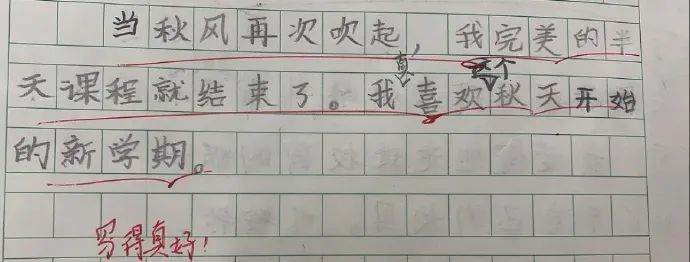 当秋风再次吹起，我完美的半
天课程就结束了。我真喜欢这个秋天开始
的新学期。
写得真好！